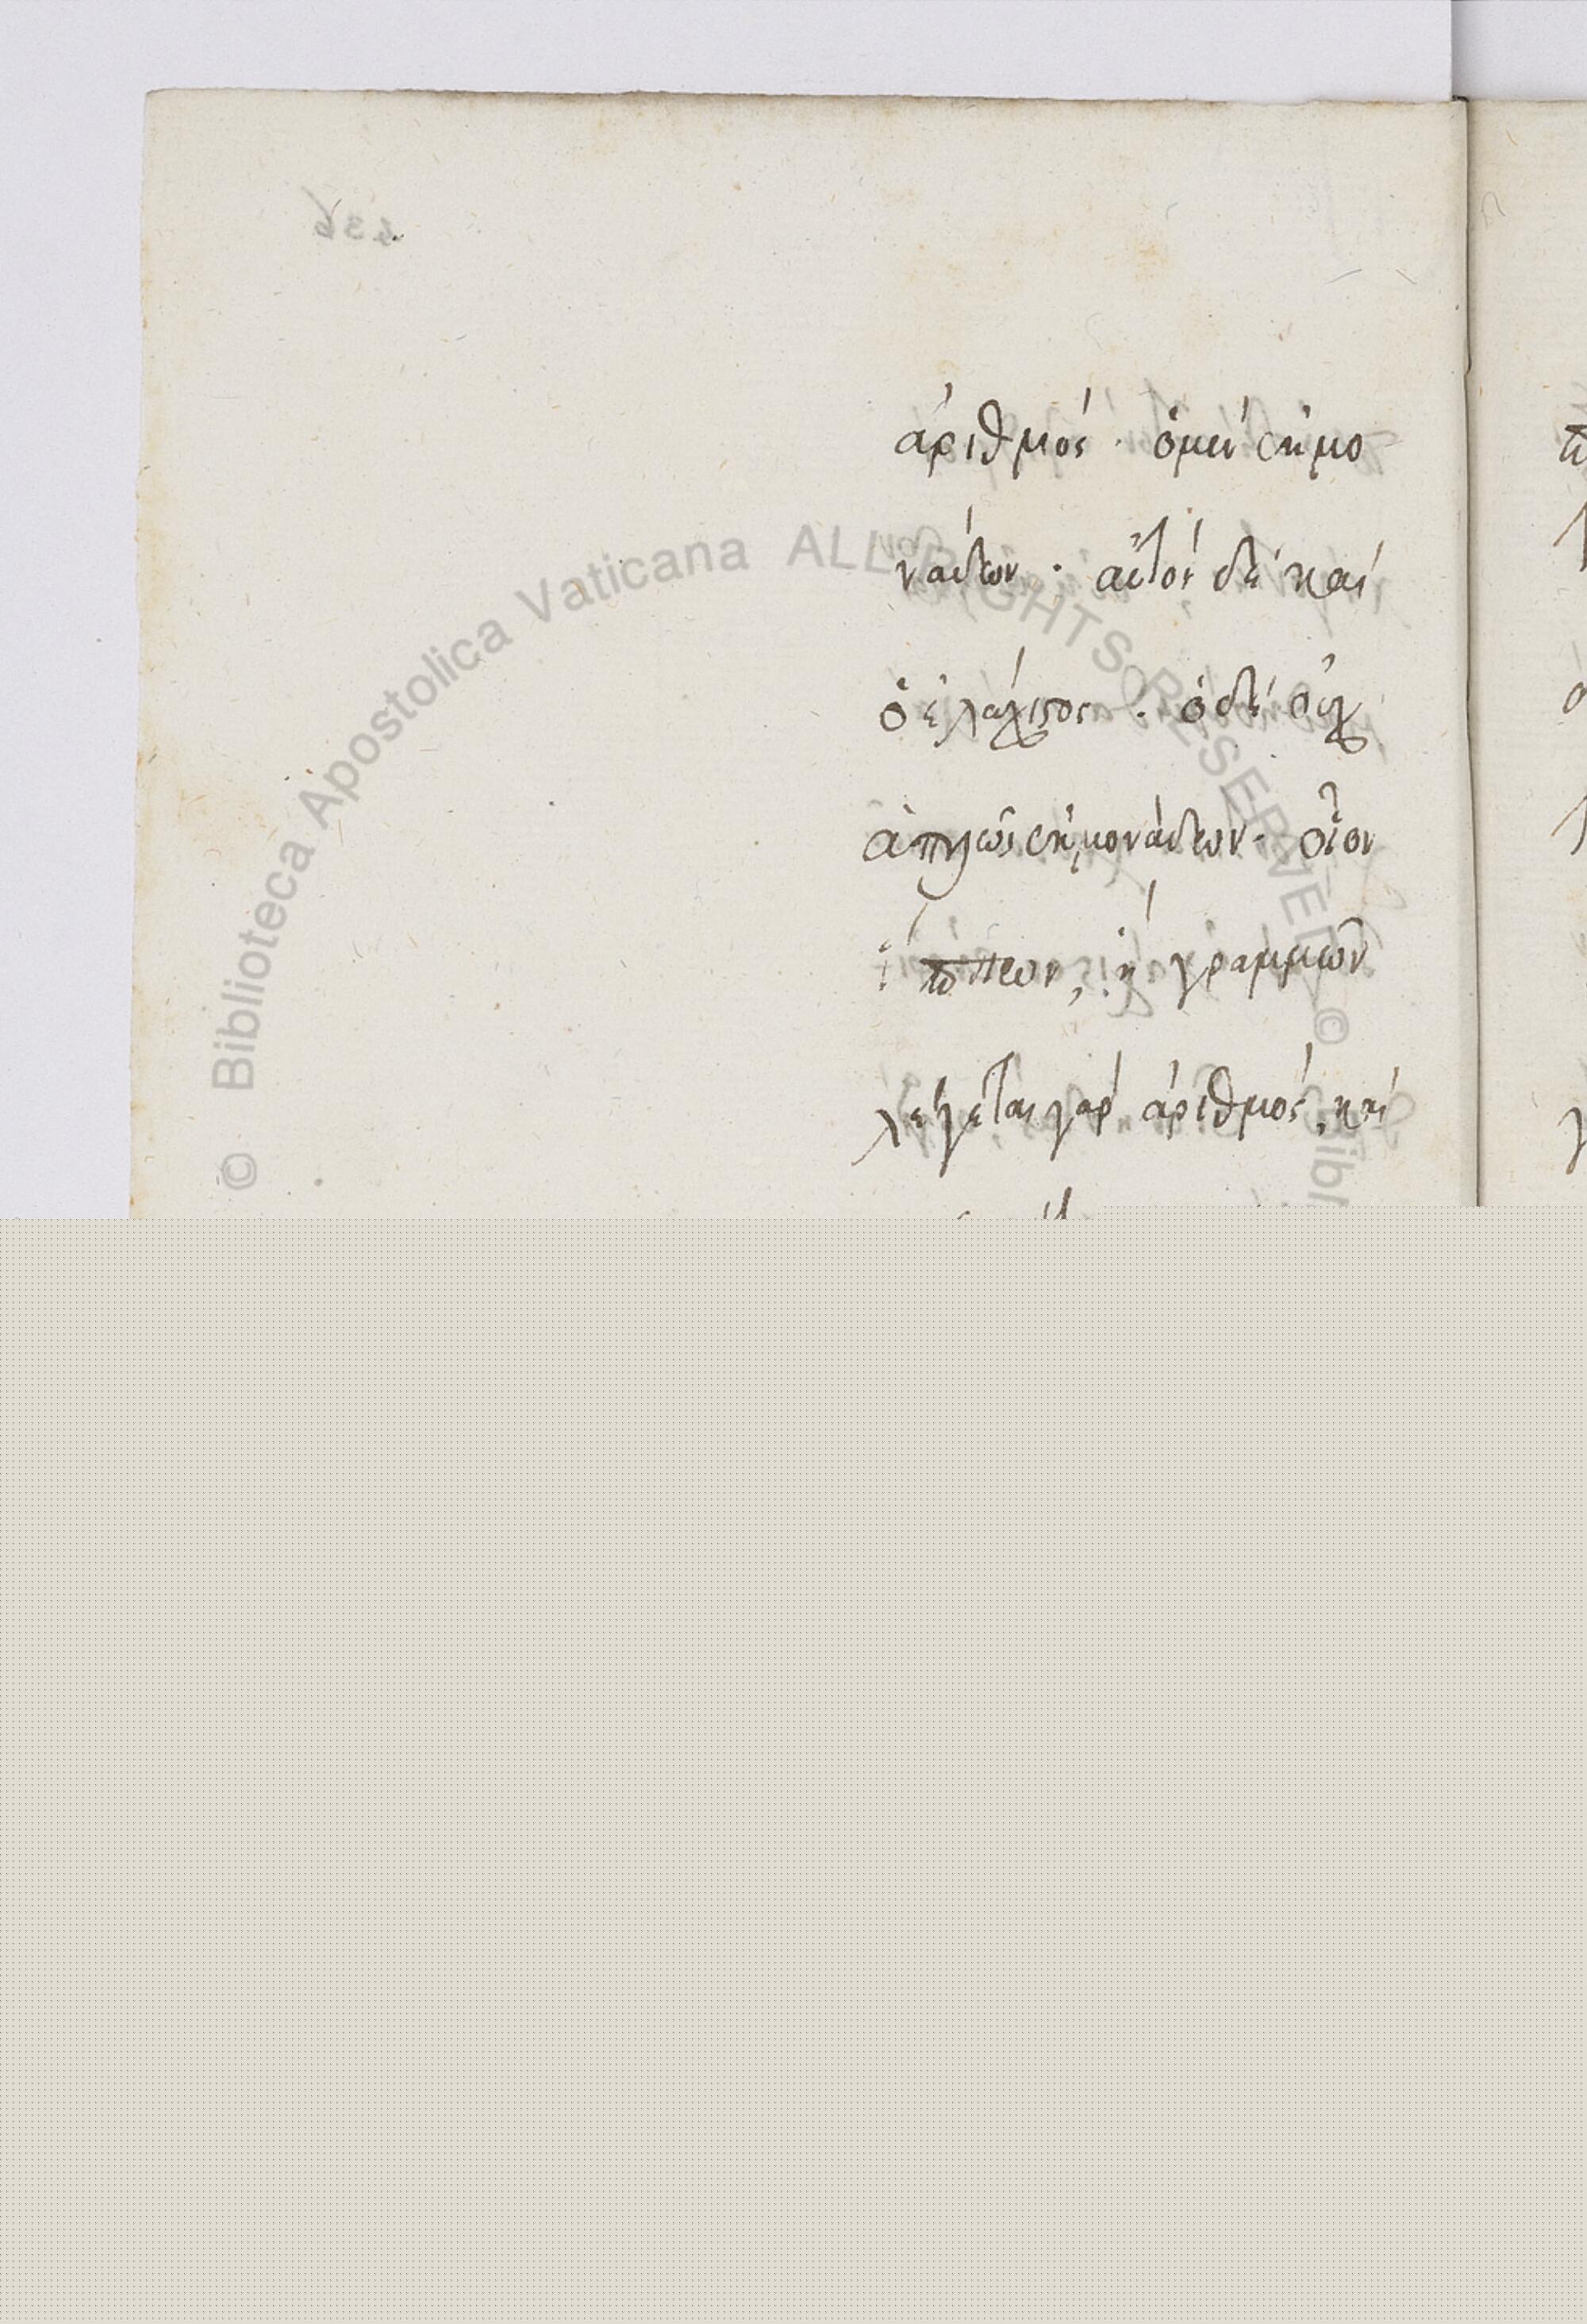 ἀριθμός · ὁ μέν ἐκ μο-
νάδων · αὐτός δέ καί
ὁ ἐλάχιστος · ὁ δέ οὐχ
ἁπλῶς ἐκ μονάδων · οἷον
ἤ γραμμῶν
λέγεται γάρ ἀριθμός, καί
© Biblioteca Apostolica Vaticana ALL RIGHTS RESERVED © Bibl